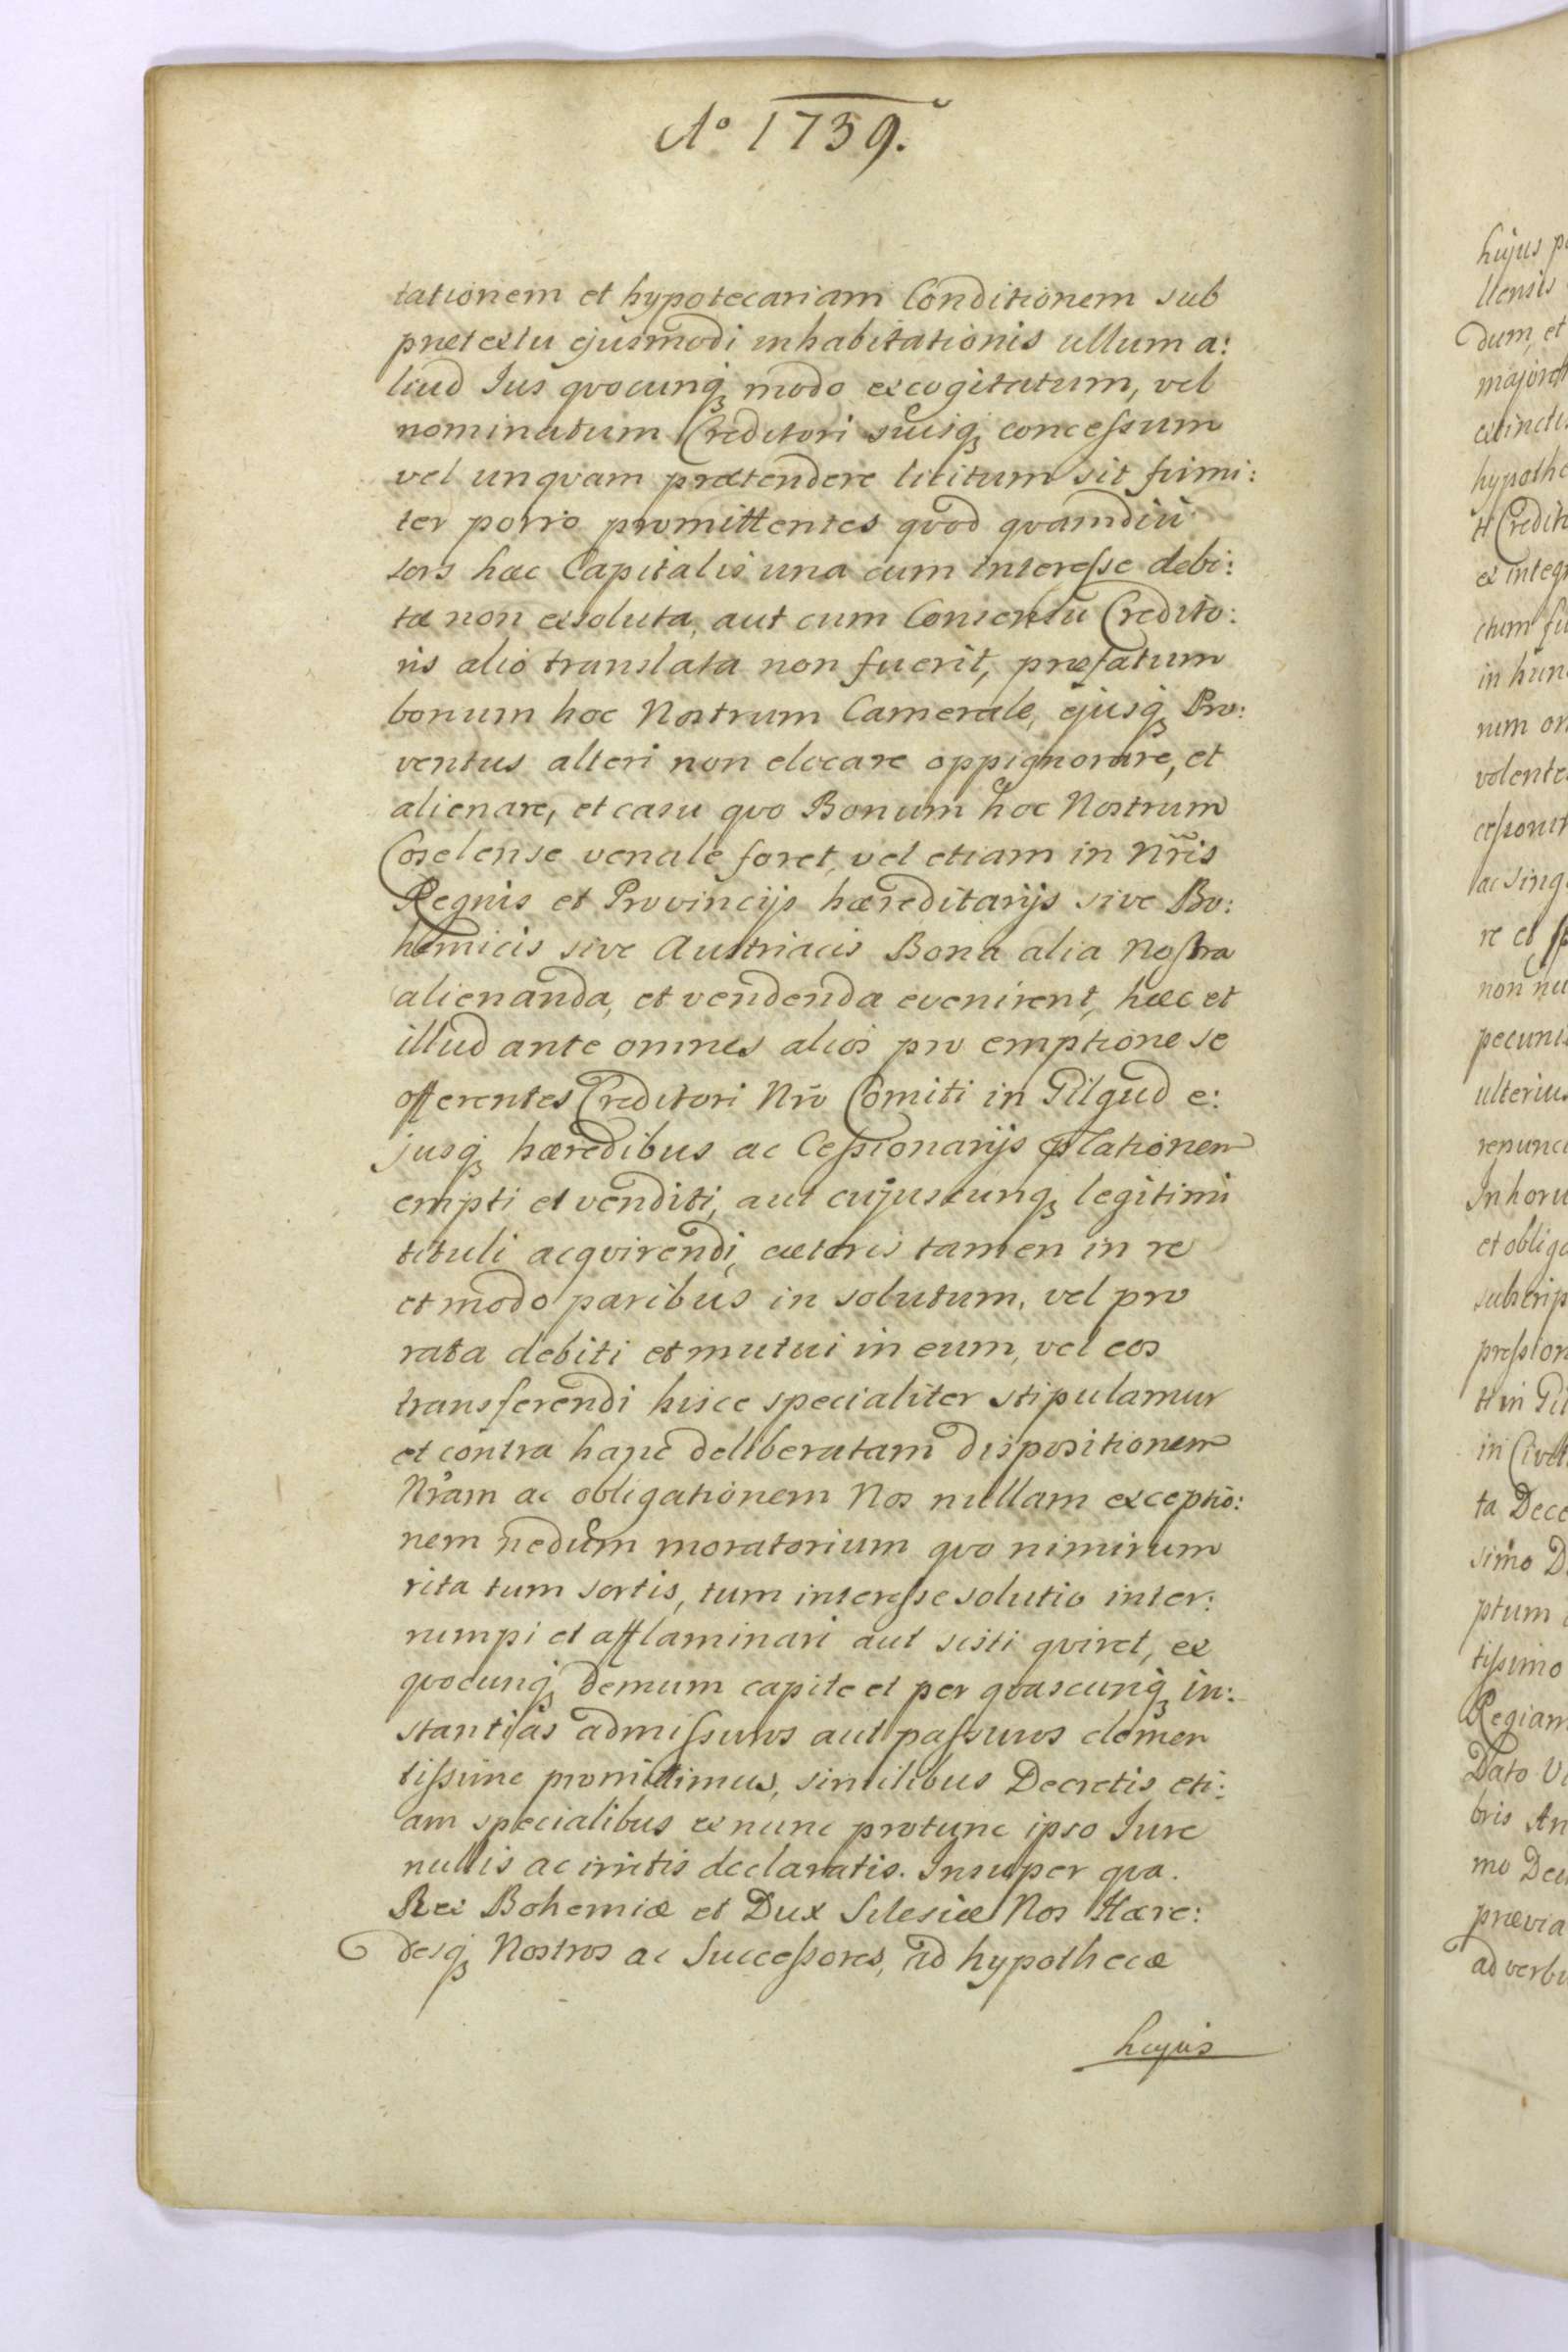 Aº 1739.
tationem et hypotecariam Conditionem sub
prætextu ejusmodi inhabitationis ullum a:
liud Jus qvocunq₃ modo excogitatum, vel
nominatum Creditori suisq₃ concessum
vel unqvam prætendere licitum sit firmi:
ter porro promittentes qvod qvamdiu
sors hæc Capitalis una cum interesse debi:
tæ non exsoluta, aut cum Consensu Credito:
ris alio translata non fuerit, præfatum
bonum hoc Nostrum Camerale, ejusq₃ Pro:
ventus alteri non elocare oppignorare, et
alienare, et casu qvo Bonum hoc Nostrum
Coselense venale foret, vel etiam in Nr̃is
Regnis et Provincijs hæreditarijs sive Bo:
hemicis sive Austriacis Bona alia Nostra
alienanda, et vendenda evenirent, hæc et
illud ante omnes alios pro emptione se
offerentes Creditori Nr̃o Comiti in Pilgud e:
jusq₃ hæredibus ac Cessionarijs
empti et venditi, aut cujuscunq₃ legitimi
tituli acqvirendi, cæteris tamen in re
et modo paribus in solutum, vel pro
rata debiti et mutui in eum, vel eos
transferendi hisce specialiter stipulamur
et contra hanc deliberatam dispositionem
Nr̃am ac obligationem Nos nullam exceptio:
nem nedum moratorium qvo nimirum
rita tum sortis, tum interesse solutio inter:
rumpi et afflaminari aut sisti qviret, ex
qvocunq₃ demum capite et per qvascunq₃ in:
stantias admissuros aut passuros clemen
tissime promittimus, similibus Decretis eti:
am specialibus ex nunc protunc ipso Jure
nullis ac irritis declaratis. Insuper qva.
Rex Bohemiæ et Dux Silesiæ Nos Hære:
desq₃ Nostros ac Successores, ad hypothecæ
hujus
hujus
dum, et
in
volente
non
ulterius
et
ta
Dato
prævia